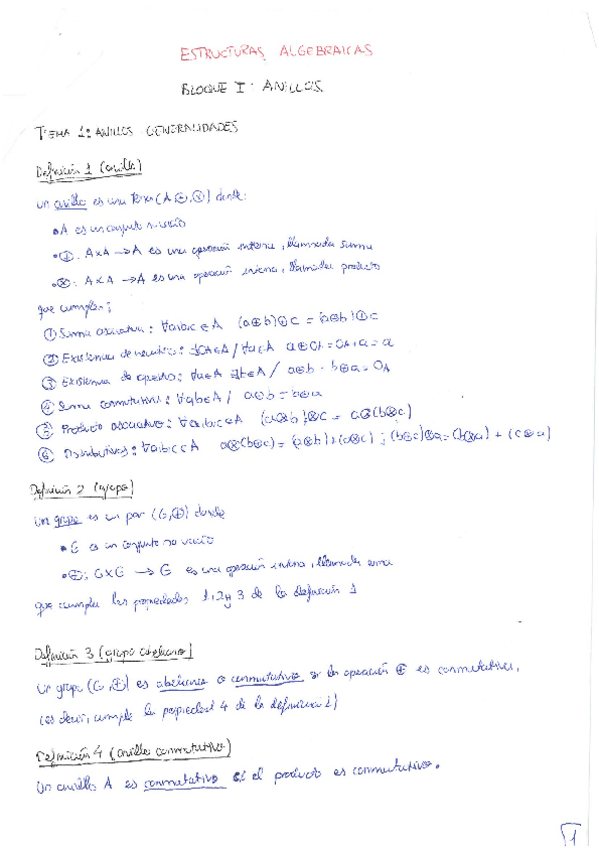 ESTRUCTURAS ALGEBRAICAS
BLOQUE I: ANILLOS.
TEMA 1: ANILLOS GENERALIDADES
Definición 1 (anillo)
Un anillo es una terna (A,⊕,⊗) donde:
• A es un conjunto no vacío
• ⊕: A×A → A es una operación interna, llamada suma
• ⊗: A×A → A es una operación interna, llamada producto
que cumplen:
① Suma asociativa: ∀a,b,c∈A (a⊕b)⊕c = (a⊕b)⊕c
② Existencia de neutro: ∃0A∈A / ∀a∈A a⊕0A = 0A+a = a
③ Existencia de opuesto: ∀a∈A ∃b∈A / a⊕b = b⊕a = 0A
④ Suma conmutativa: ∀a,b∈A / a⊕b = b⊕a
⑤ Producto asociativo: ∀a,b,c∈A (a⊗b)⊗c = a⊗(b⊗c)
⑥ Distributivas: ∀a,b,c∈A a⊗(b⊕c) = (a⊗b)+(a⊗c) ; (b⊕c)⊗a = (b⊗a) + (c⊗a)
Definición 2 (grupo)
Un grupo es un par (G,⊕) donde
• G es un conjunto no vacío
• ⊕: G×G → G es una operación interna, llamada suma
que cumplen las propiedades 1, 2 y 3 de la definición 1
Definición 3 (grupo abeliano)
Un grupo (G,⊕) es abeliano o conmutativo si la operación ⊕ es conmutativa,
(es decir, cumple la propiedad 4 de la definición 1)
Definición 4 (anillo conmutativo)
Un anillo A es conmutativo si el producto es conmutativo.
1